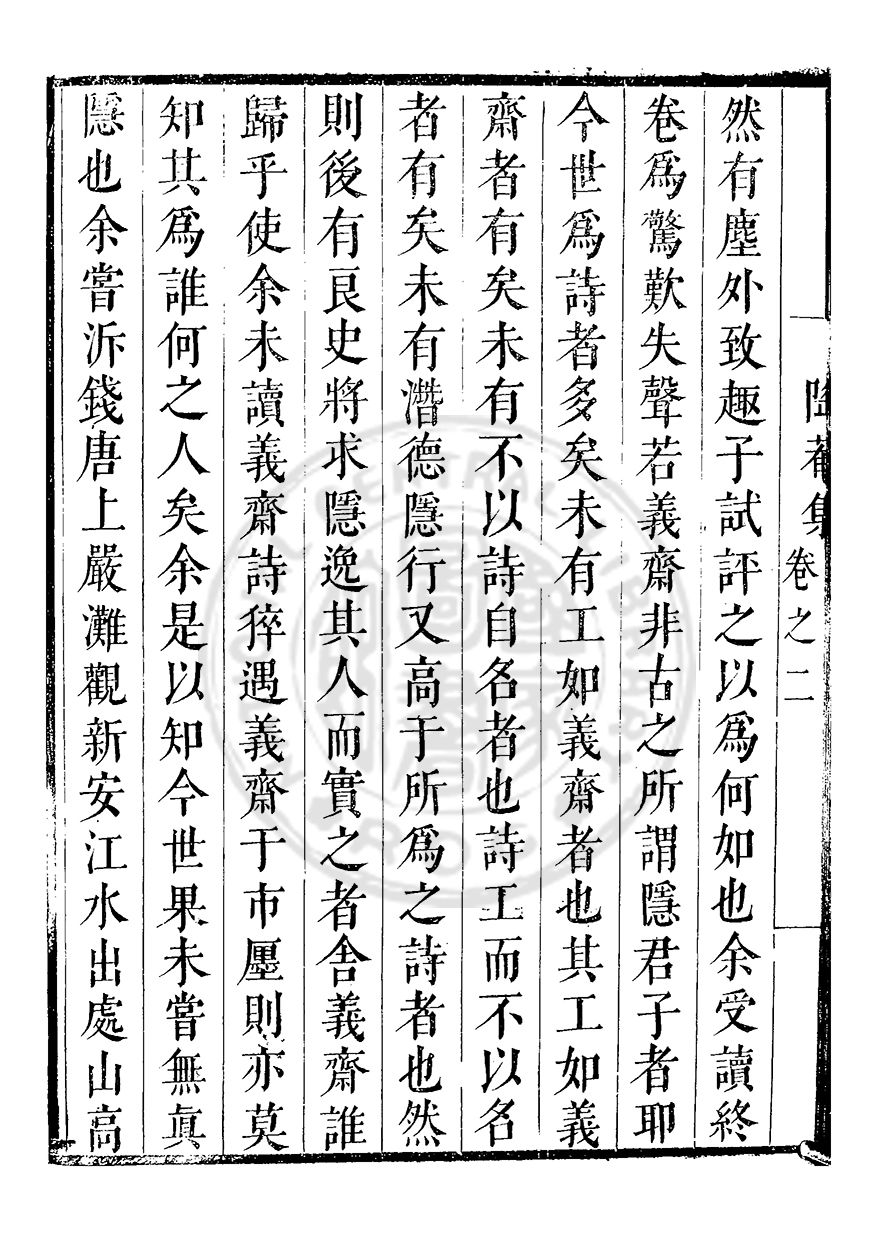 陶菴集 卷之二
然有塵外致趣子試評之以爲何如也余受讀終
卷爲驚歎失聲若義齋非古之所謂隱君子者耶
今世爲詩者多矣未有工如義齋者也其工如義
齋者有矣未有不以詩自名者也詩工而不以名
者有矣未有潛德隱行又高于所爲之詩者也然
則後有良史將求隱逸其人而實之者舍義齋誰
歸乎使余未讀義齋詩猝遇義齋于市廛則亦莫
知其爲誰何之人矣余是以知今世果未嘗無眞
隱也余嘗泝錢唐上嚴灘觀新安江水出處山高